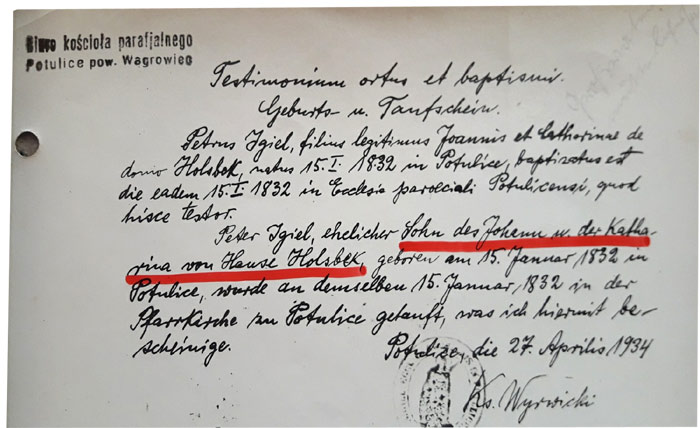 Biuro kościoła parafjalnego
Potulice pow. Wągrowiec
Testimonium ortus et baptismi.
Geburts- u. Taufschein.
Petrus Igiel, filius legitimus Joannis et Catharinae de
domo Holsbek, natus 15.I. 1832 in Potulice, baptizatus est
die eadem 15.I. 1832 in Ecclesia paroeciali Potulicensi, quod
hisce testor.
Peter Igiel, ehelicher Sohn des Johann u. der Katha-
rina von Hause Holsbek, geboren am 15. Januar 1832 in
Potulice, wurde an demselben 15. Januar, 1832 in der
Pfarrkirche zu Potulice getauft, was ich hiermit be-
scheinige.
Potulice, die 27. Aprilis 1934
Ks. Wyrwicki